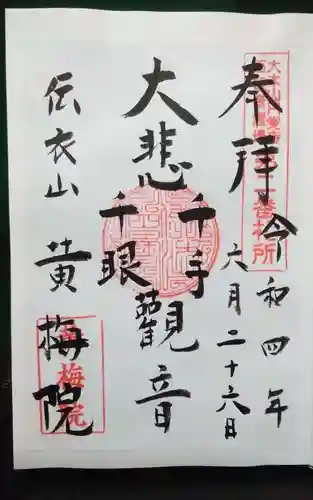 奉拝
令和四年
六月二十六日
大悲
千手
千眼
観音
伝衣山
黄梅院